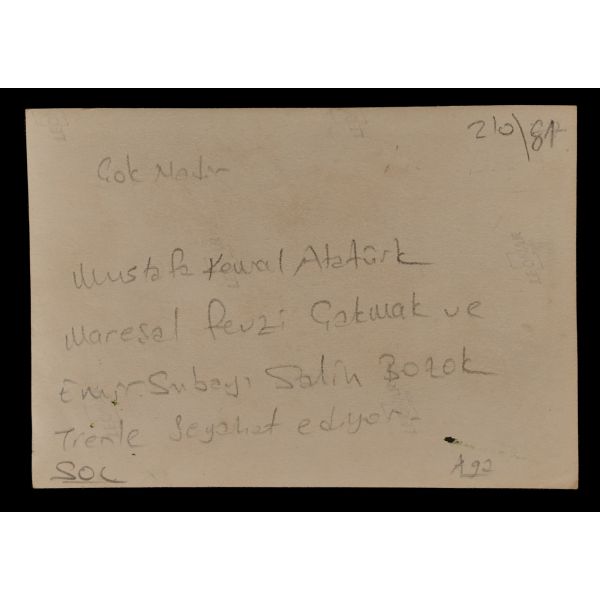 210/
Çok Nadir
Mustafa Kemal Atatürk
Mareşal Fevzi Çakmak ve
Emir Subayı Salih Bozok
Trenle Seyahat ediyor-
SOL